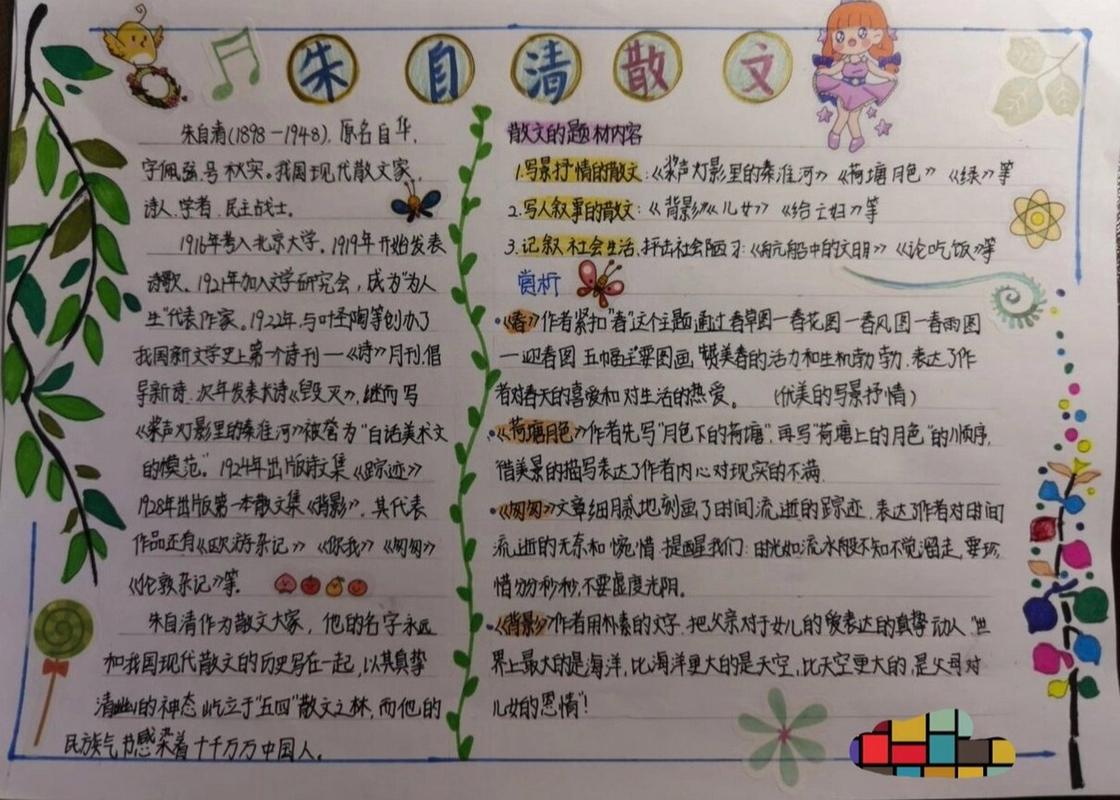 朱自清散文
朱自清(1898-1948),原名自华,
字佩弦,号秋实。我国现代散文家,
诗人.学者.民主战士。
1916年考入北京大学。1919年开始发表
诗歌。1921年加入文学研究会,成为"为人
生"代表作家。1922年,与叶圣陶等创办了
我国新文学史上第一个诗刊—《诗》月刊,倡
导新诗.次年发表长诗《毁灭》,继而写
《桨声灯影里的秦淮河》被誉为"白话美术文
的模范。"1924年出版诗文集《踪迹》
1928年出版第一本散文集《背影》。其代表
作品还有《欧游杂记》《你我》《匆匆》
《伦敦杂记》等.
朱自清作为散文大家,他的名字永远
和我国现代散文的历史写在一起,以其真挚
清幽的神态屹立于"五四"散文之林,而他的
民族气节感染着千千万万中国人。
散文的题材内容
1.写景抒情的散文:《桨声灯影里的秦淮河》《荷塘月色》《绿》等
2.写人叙事的散文:《背影》《儿女》《给亡妇》等
3.记叙社会生活、抨击社会陋习:《航船中的文明》《论吃饭》等
赏析
•《春》作者紧扣"春"这个主题通过春草图一春花图一春风图一春雨图
一迎春图 五幅主要图画,赞美春的活力和生机勃勃.表达了作
者对春天的喜爱和对生活的热爱。(优美的写景抒情)
•《荷塘月色》作者先写"月色下的荷塘",再写"荷塘上的月色"的顺序,
借美景的描写表达了作者内心对现实的不满.
•《匆匆》文章细腻地刻画了时间流逝的踪迹.表达了作者对时间
流逝的无奈和惋惜.提醒我们:时光如流水般不知不觉溜走,要珍
惜分分秒秒,不要虚度光阴。
•《背影》作者用朴素的文字.把父亲对于女儿的爱表达的真挚动人"世
界上最大的是海洋,比海洋更大的是天空,比天空更大的,是父母对
儿女的恩情"!